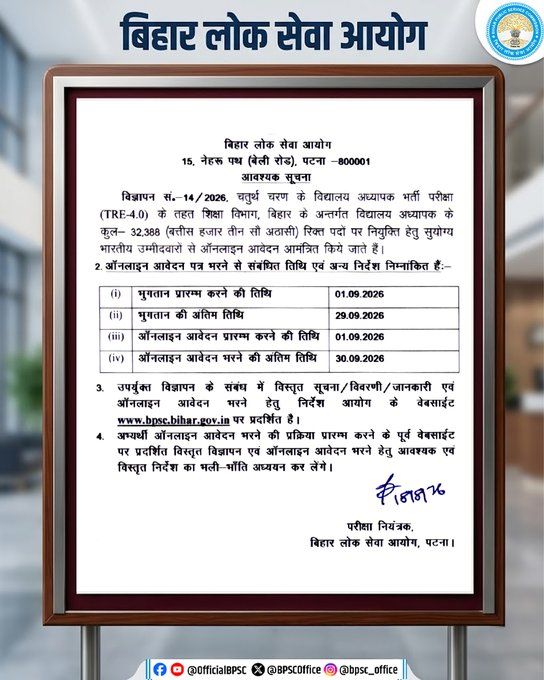 बिहार लोक सेवा आयोग
बिहार लोक सेवा आयोग
15, नेहरू पथ (बेली रोड), पटना –800001
आवश्यक सूचना
विज्ञापन सं.-14/2026, चतुर्थ चरण के विद्यालय अध्यापक भर्ती परीक्षा
(TRE-4.0) के तहत शिक्षा विभाग, बिहार के अन्तर्गत विद्यालय अध्यापक के
कुल– 32,388 (बत्तीस हजार तीन सौ अठासी) रिक्त पदों पर नियुक्ति हेतु सुयोग्य
भारतीय उम्मीदवारों से ऑनलाइन आवेदन आमंत्रित किये जाते हैं।
2. ऑनलाइन आवेदन पत्र भरने से संबंधित तिथि एवं अन्य निर्देश निम्नांकित हैं:–
(i) भुगतान प्रारम्भ करने की तिथि 01.09.2026
(ii) भुगतान की अंतिम तिथि 29.09.2026
(iii) ऑनलाइन आवेदन प्रारम्भ करने की तिथि 01.09.2026
(iv) ऑनलाइन आवेदन भरने की अंतिम तिथि 30.09.2026
3. उपर्युक्त विज्ञापन के संबंध में विस्तृत सूचना/विवरणी/जानकारी एवं
ऑनलाइन आवेदन भरने हेतु निर्देश आयोग के वेबसाईट
www.bpsc.bihar.gov.in पर प्रदर्शित है।
4. अभ्यर्थी ऑनलाइन आवेदन भरने की प्रक्रिया प्रारम्भ करने के पूर्व वेबसाईट
पर प्रदर्शित विस्तृत विज्ञापन एवं ऑनलाइन आवेदन भरने हेतु आवश्यक एवं
विस्तृत निर्देश का भली–भाँति अध्ययन कर लेंगे।
परीक्षा नियंत्रक,
बिहार लोक सेवा आयोग, पटना।
@OfficialBPSC @BPSCOffice @bpsc_office